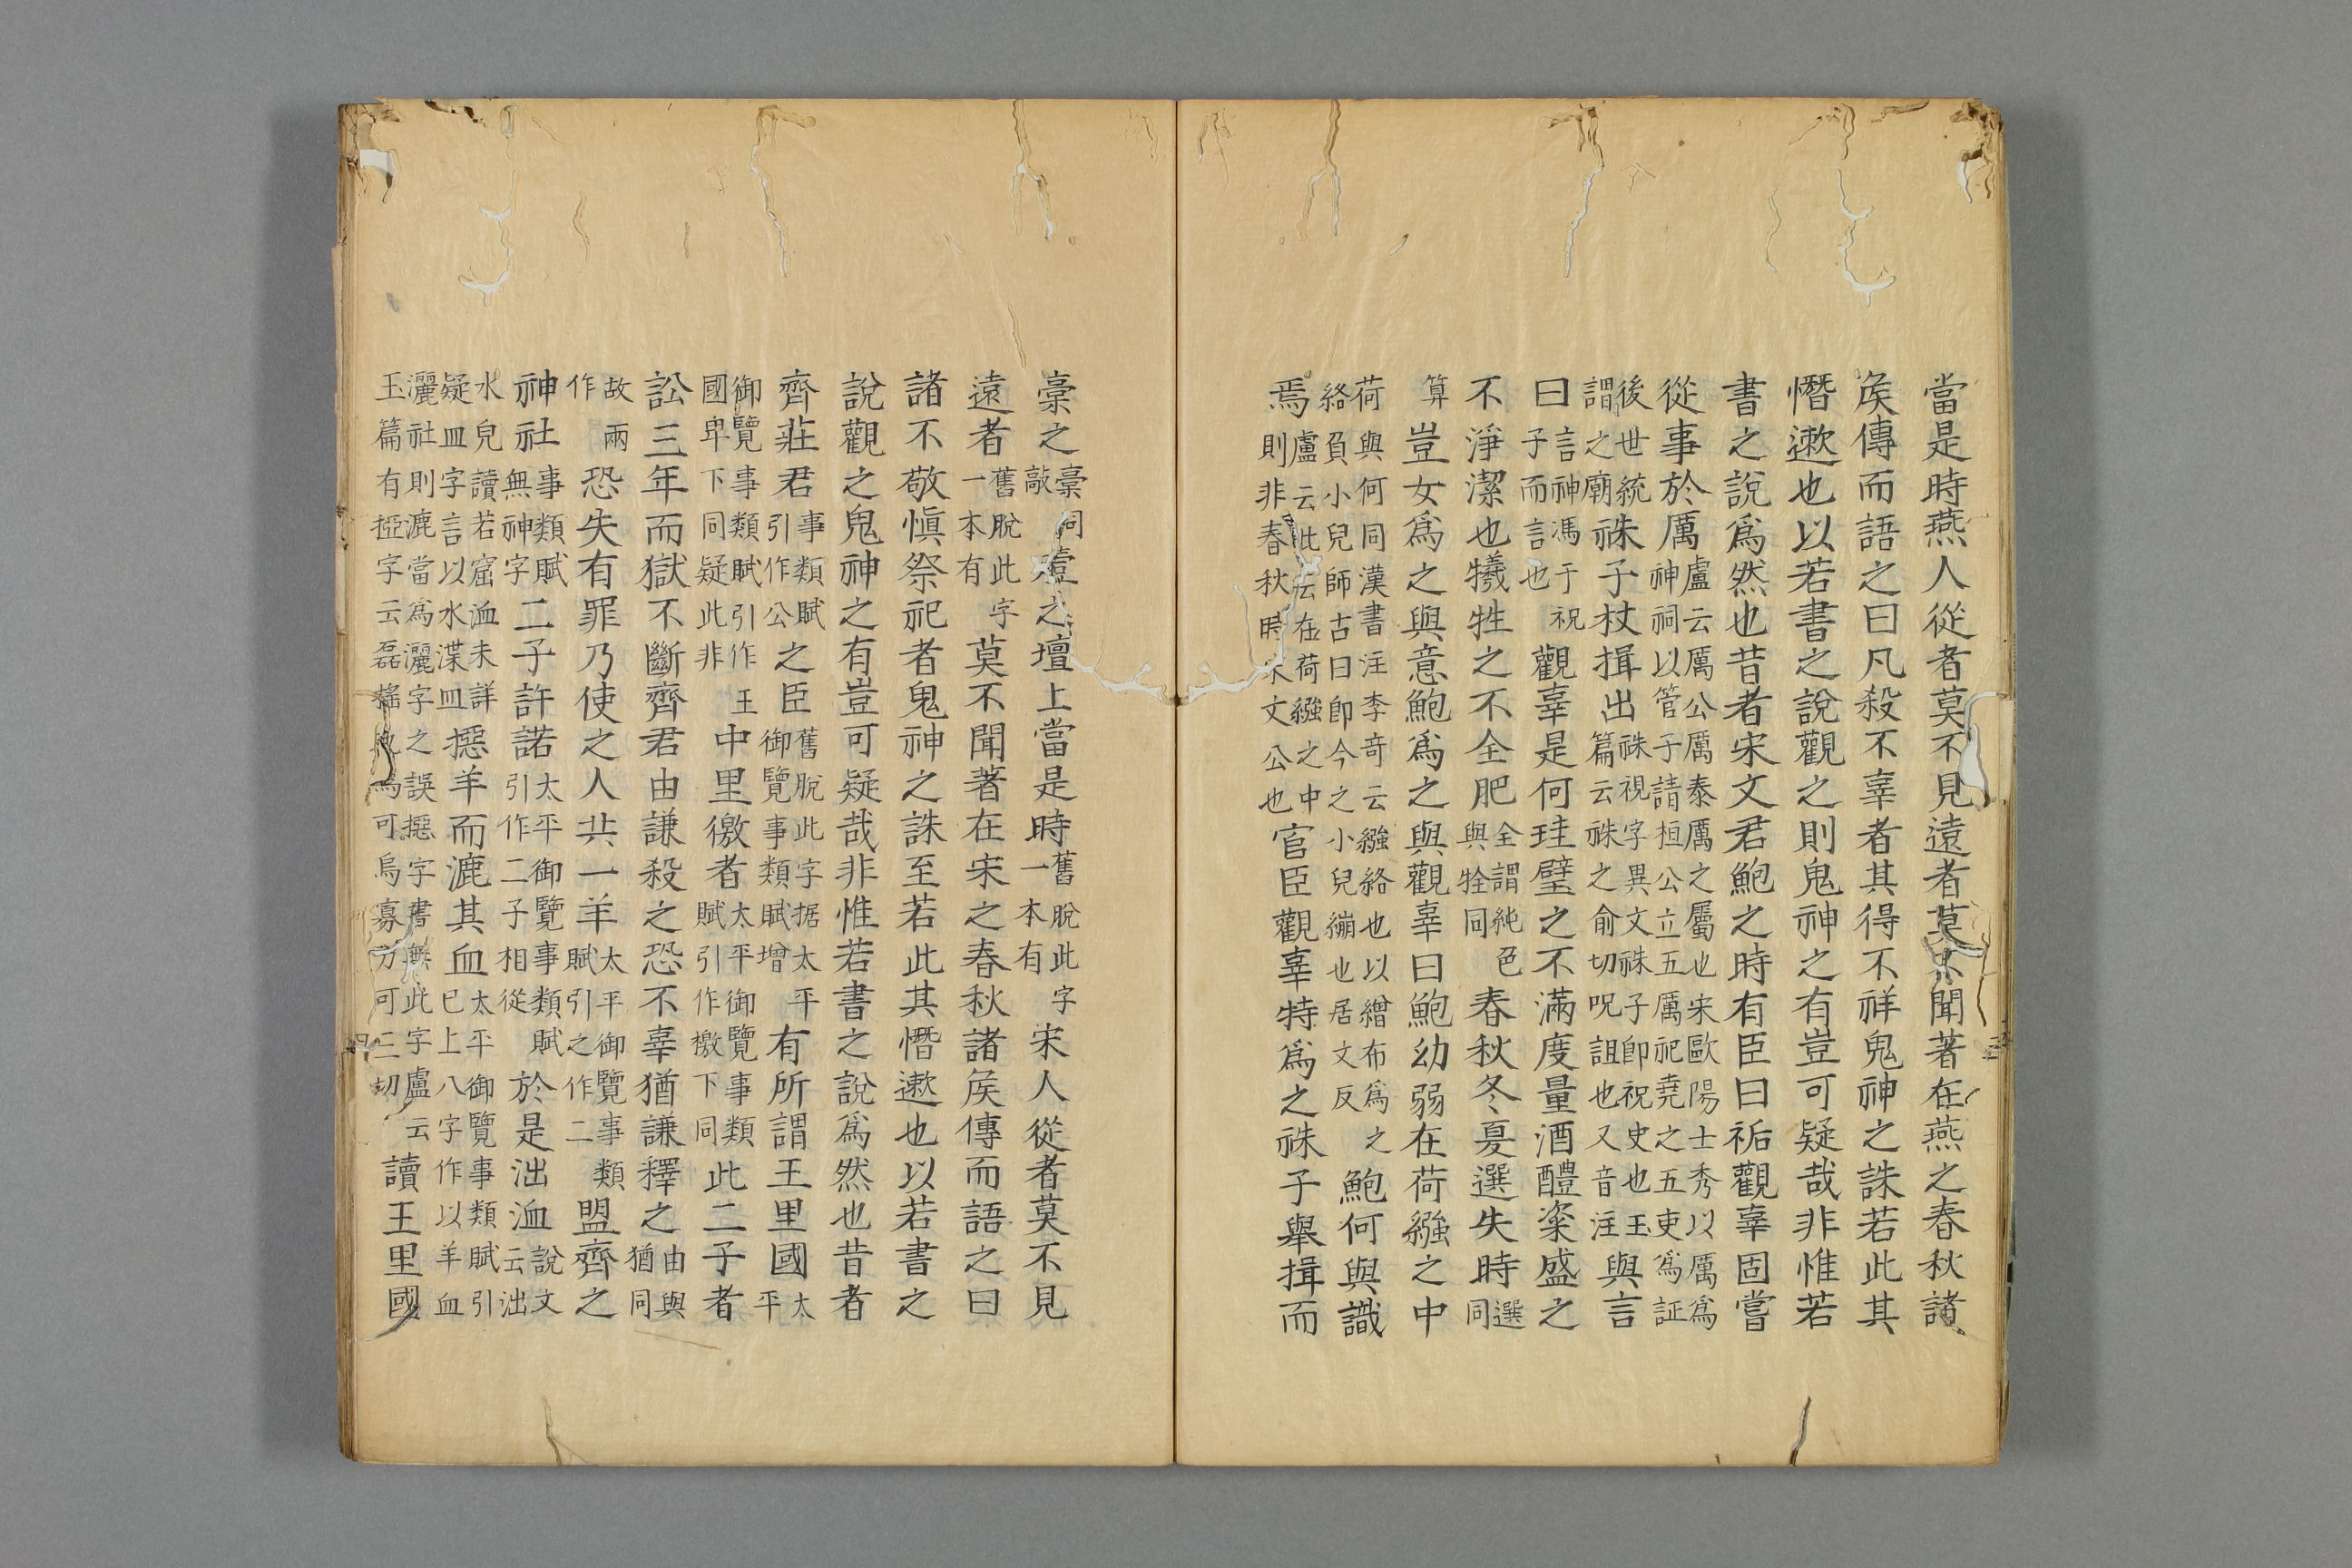 當是時燕人從者莫不見遠者莫不聞著在燕之春秋諸
矦傳而語之曰凡殺不辜者其得不祥鬼神之誅若此其
憯遬也以若書之說觀之則鬼神之有豈可疑哉非惟若
書之說爲然也昔者宋文君鮑之時有臣曰祏觀辜固嘗
從事於厲盧云厲公厲泰厲之屬也宋歐陽士秀以厲爲神祠以管子請桓公立五厲祀堯之五吏爲証
後世統謂之廟祩子杖揖出祩視字異文祩子卽祝史也玉篇云祩之俞切呪詛也又音注與言
曰言神馮于祝子而言也觀辜是何珪璧之不滿度量酒醴粢盛之
不淨潔也犧牲之不全肥全謂純色與牷同春秋冬夏選失時選同
算豈女爲之與意鮑爲之與觀辜曰鮑幼弱在荷繈之中
荷與何同漢書注李奇云繈絡也以繒布爲之絡負小兒師古曰卽今之小兒繃也居文反鮑何與識
焉盧云此云在荷繈之中則非春秋時宋文公也官臣觀辜特爲之祩子舉揖而
槀之槀同敲殪之壇上當是時舊脫此字一本有宋人從者莫不見
遠者舊脫此字一本有莫不聞著在宋之春秋諸矦傳而語之曰
諸不敬愼祭祀者鬼神之誅至若此其憯遬也以若書之
說觀之鬼神之有豈可疑哉非惟若書之說爲然也昔者
齊莊君事類賦引作公之臣舊脫此字据太平御覽事類賦增有所謂王里國太平
御覽事類賦引作王國卑下同疑此非中里徼者太平御覽事類賦引作檄下同此二子者
訟三年而獄不斷齊君由謙殺之恐不辜猶謙釋之由與猶同
故兩作恐失有罪乃使之人共一羊太平御覽事類賦引之作二盟齊之
神社事類賦無神字二子許諾太平御覽事類賦引作二子相從於是泏洫說文云泏
水皃讀若窟洫未詳疑皿字言以水渫皿㧅羊而漉其血太平御覽事類賦引已上八字作以羊血
灑社則漉當爲灑字之誤㧅字書無此字盧云玉篇有掗字云磊搖也烏可烏寡力可三切讀王里國